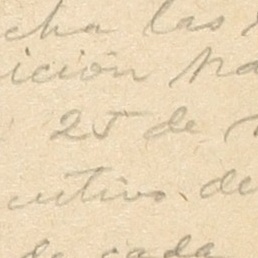 cha las
ición
25 de
cutivo de
de cada